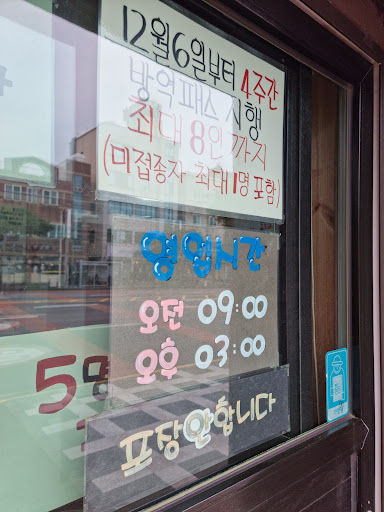 12월6일부터 4주간
방역패스 시행
최대 8인 까지
(미접종자 최대1명 포함)
영업시간
오전 09:00
오후 03:00
5명
포장안합니다